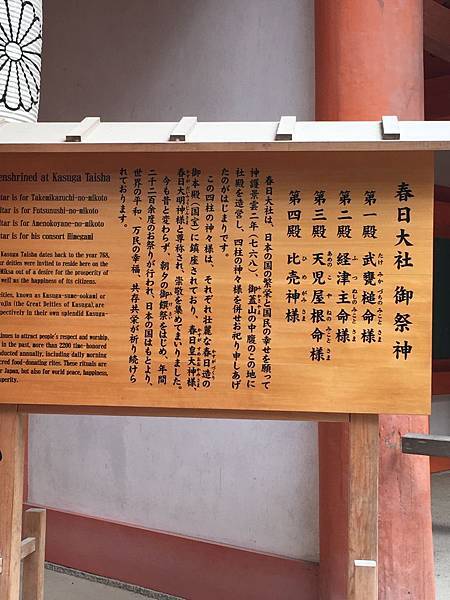 春日大社 御祭神
第一殿 武甕槌命様
たけ みか づちの みこと さま
第二殿 経津主命様
ふ つ ぬしの みこと さま
第三殿 天児屋根命様
あめの こ や ねの みこと さま
第四殿 比売神様
ひ め がみ さま
春日大社は、日本の国の繁栄と国民の幸せを願って
神護景雲二年(七六八)、御蓋山の中腹のこの地に
社殿を造営し、四柱の神々様を併せお祀り申しあげ
たのがはじまりです。
この四柱の神々様は、それぞれ壮麗な春日造の
かすがづくり
御本殿(国宝)に鎮座されており、春日皇大神様、
春日大明神様と尊称され、崇敬を集めてまいりました。
今も昔と変わらず、朝夕の御饌祭をはじめ、年間
二千二百余度のお祭りが行われ、日本の国はもとより、
世界の平和、万民の幸福、共存共栄が祈り続けら
れております。
enshrined at Kasuga Taisha
tar is for Takemikazuchi-no-mikoto
ltar is for Futsunushi-no-mikoto
tar is for Amenokoyane-no-mikoto
ltar is for his consort Himegami
Kasuga Taisha dates back to the year 768,
ur deities were invited to reside here on the
Mikasa out of a desire for the prosperity of
well as the happiness of its citizens.
ities, known as Kasuga-sume-ookami or
yojin (the Great Deities of Kasuga), are
pectively in their own splendid Kasuga-
tinues to attract people's respect and worship.
in the past, more than 2200 time-honored
onducted annually, including daily morning
cred food-donating rites. These rituals are
r Japan, but also for world peace, happiness,
sperity.